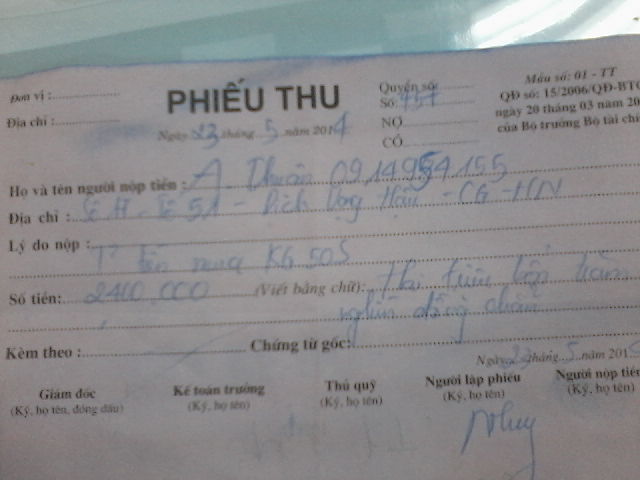 Đơn vị :
PHIẾU THU
Quyển số:
Mẫu số: 01 - TT
Địa chỉ :
Số: 457
QĐ số: 15/2006/QĐ-BTC
Ngày 23 tháng 5 năm 2014
NỢ
ngày 20 tháng 03 năm 20
CÓ
của Bộ trưởng Bộ tài chí
Họ và tên người nộp tiền : A. Thuân
Địa chỉ : Dịch Vọng Hậu - CG - HN
Lý do nộp :
KG 50S
Số tiền: 2400.000 (Viết bằng chữ): Hai triệu bốn trăm
nghìn đồng chẵn
Kèm theo : Chứng từ gốc:
Ngày 23 tháng 5 năm 201
Giám đốc Kế toán trưởng Thủ quỹ Người lập phiếu Người nộp tiền
(Ký, họ tên, đóng dấu) (Ký, họ tên) (Ký, họ tên) (Ký, họ tên) (Ký, họ tên)